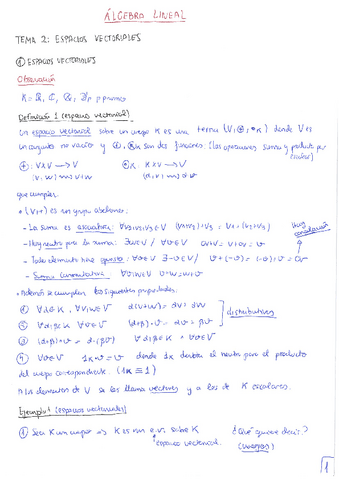 ÁLGEBRA LINEAL
TEMA 2: ESPACIOS VECTORIALES
① ESPACIOS VECTORIALES
Observación
K = ℝ, ℂ, ℚ, ℤp p primo
Definición 1 (espacio vectorial)
Un espacio vectorial sobre un cuerpo K es una terna (V, ⊕, ⊙K) donde V es
un conjunto no vacío y ⊕, ⊙K son dos funciones: (las operaciones suma y producto por
escalar)
⊕: V×V → V ⊙K: K×V → V
que cumplen:
• (V,+) es un grupo abeliano:
- La suma es asociativa: ∀v₁,v₂,v₃ ∈ V (v₁+v₂)+v₃ = v₁+(v₂+v₃)
- Hay neutro para la suma: ∃ ∈ V / ∀v∈V
- Todo elemento tiene opuesto: ∀v∈V ∃ -v∈V / v+(-v) = (-v)+v =
- Suma conmutativa: ∀v,w∈V v+w=w+v
• Además se cumplen las siguientes propiedades:
1) ∀α∈K ∀v,w∈V α(v+w) = αv + αw
distributivas
2) ∀α,β∈K ∀v∈V (α+β)·v = αv + βv
3) (αβ)·v = α·(βv) ∀α,β∈K ∀v∈V
4) ∀v∈V 1K·v = v donde 1K denota el neutro para el producto
del cuerpo correspondiente. (1K ≡ 1)
A los elementos de V se les llama vectores y a los de K escalares.
Ejemplo 1 (espacios vectoriales)
① Sea K un cuerpo ⇒ K es un e.v. sobre K ¿Qué quiere decir?
espacio vectorial
1